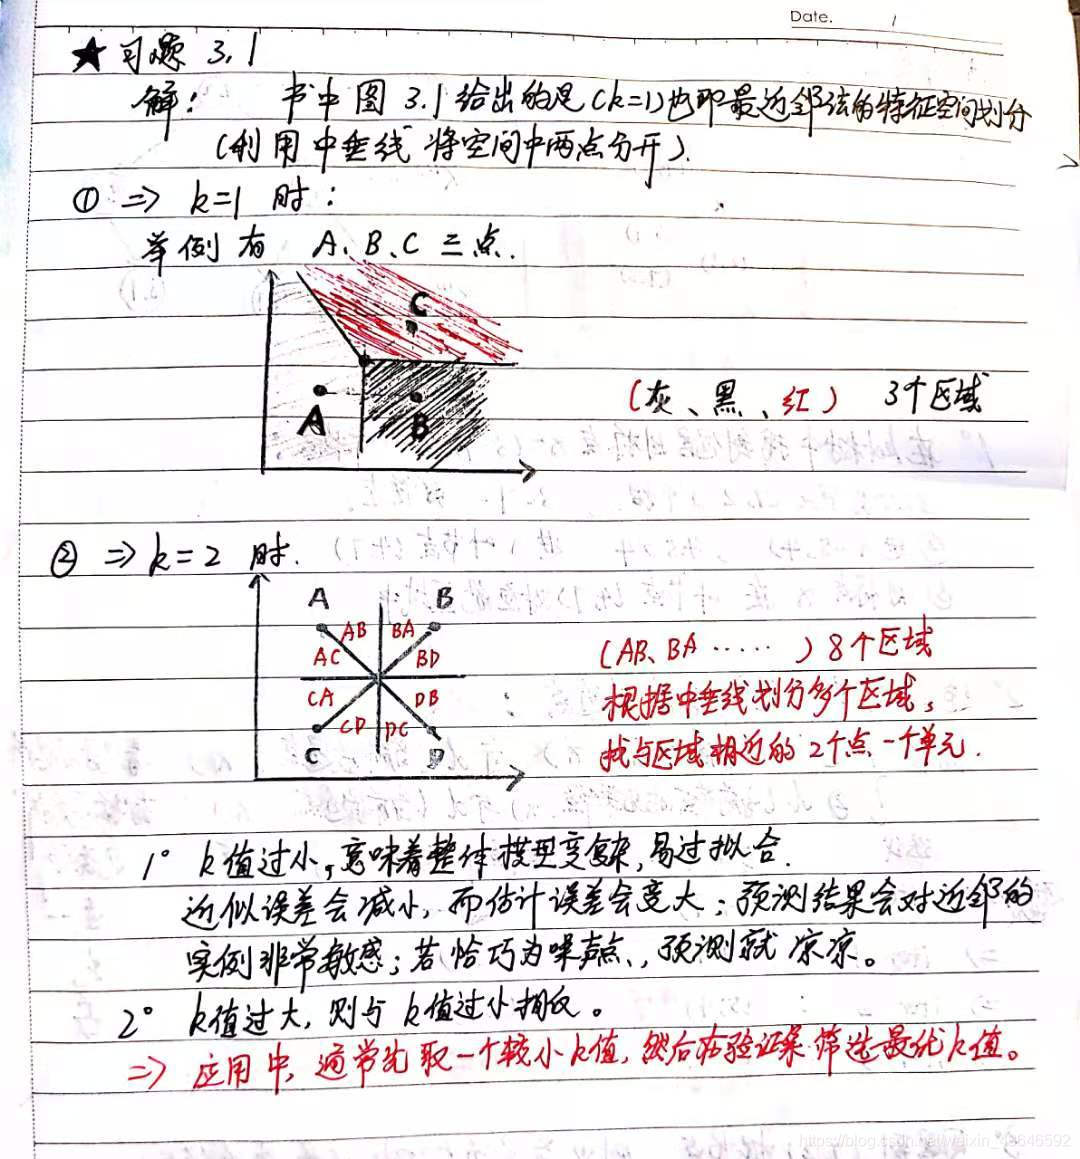 Date. /
★ 习题 3.1
解: 书中图 3.1 给出的是(k=1)也即最近邻法的特征空间划分
(利用中垂线将空间中两点分开).
① => k=1 时:
举例有 A、B、C 三点.
C
A
B
(灰、黑、红) 3个区域
② => k=2 时.
A B
AB BA
AC BD
CA DB
CD DC
C D
(AB、BA ……) 8个区域
根据中垂线划分多个区域,
找与区域相近的2个点一个单元.
1° k值过小,意味着整体模型变复杂,易过拟合.
近似误差会减小,而估计误差会变大;预测结果会对近邻的
实例非常敏感;若恰巧为噪声点,预测就凉凉。
2° k值过大,则与k值过小相反。
=> 应用中,通常先取一个较小k值,然后在验证集筛选最优k值。
https://blog.csdn.net/weixin_46646592